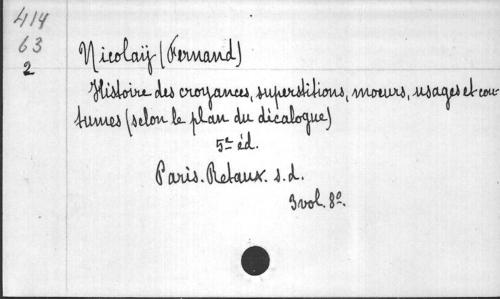 414
63
2
Nicolaÿ (Fernand)
Histoire des croyances, superstitions, moeurs, usages et cou-
tumes (selon le plan du dicalogue)
5e éd.
Paris. Retaux. s.d.
3 vol. 8°.